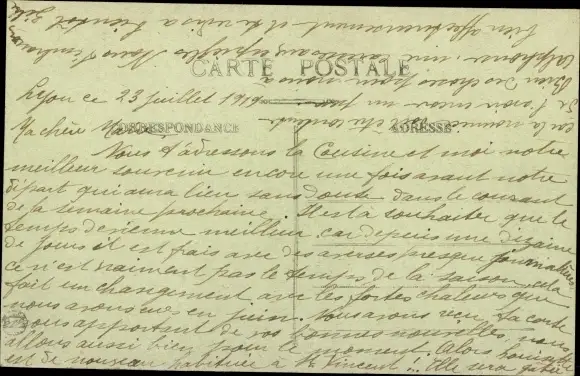 CARTE POSTALE
CORRESPONDANCE
ADRESSE
Lyon ce 23 juillet 1919
Ma chère
Nous t'adressons la Cousine et moi notre
meilleur souvenir encore une fois avant notre
départ qui aura lieu sans doute dans le courant
de la semaine prochaine. Il est à souhaiter que le
temps devienne meilleur car depuis une dizaine
de jours il est frais avec des averses presque journalières
ce n'est vraiment pas le temps de la saison, cela
fait un changement avec les fortes chaleurs que
nous avons eues en juin. Nous avons reçu ta carte
nous apportant de vos bonnes nouvelles, nous
allons aussi bien pour le moment. Alors
est de nouveau à St Vincent... Elle sera
la
de t'avoir un peu
Bien des choses pour nous à
Alphonse, Nous t'embrassons
bien affectueusement et te redis à bientôt